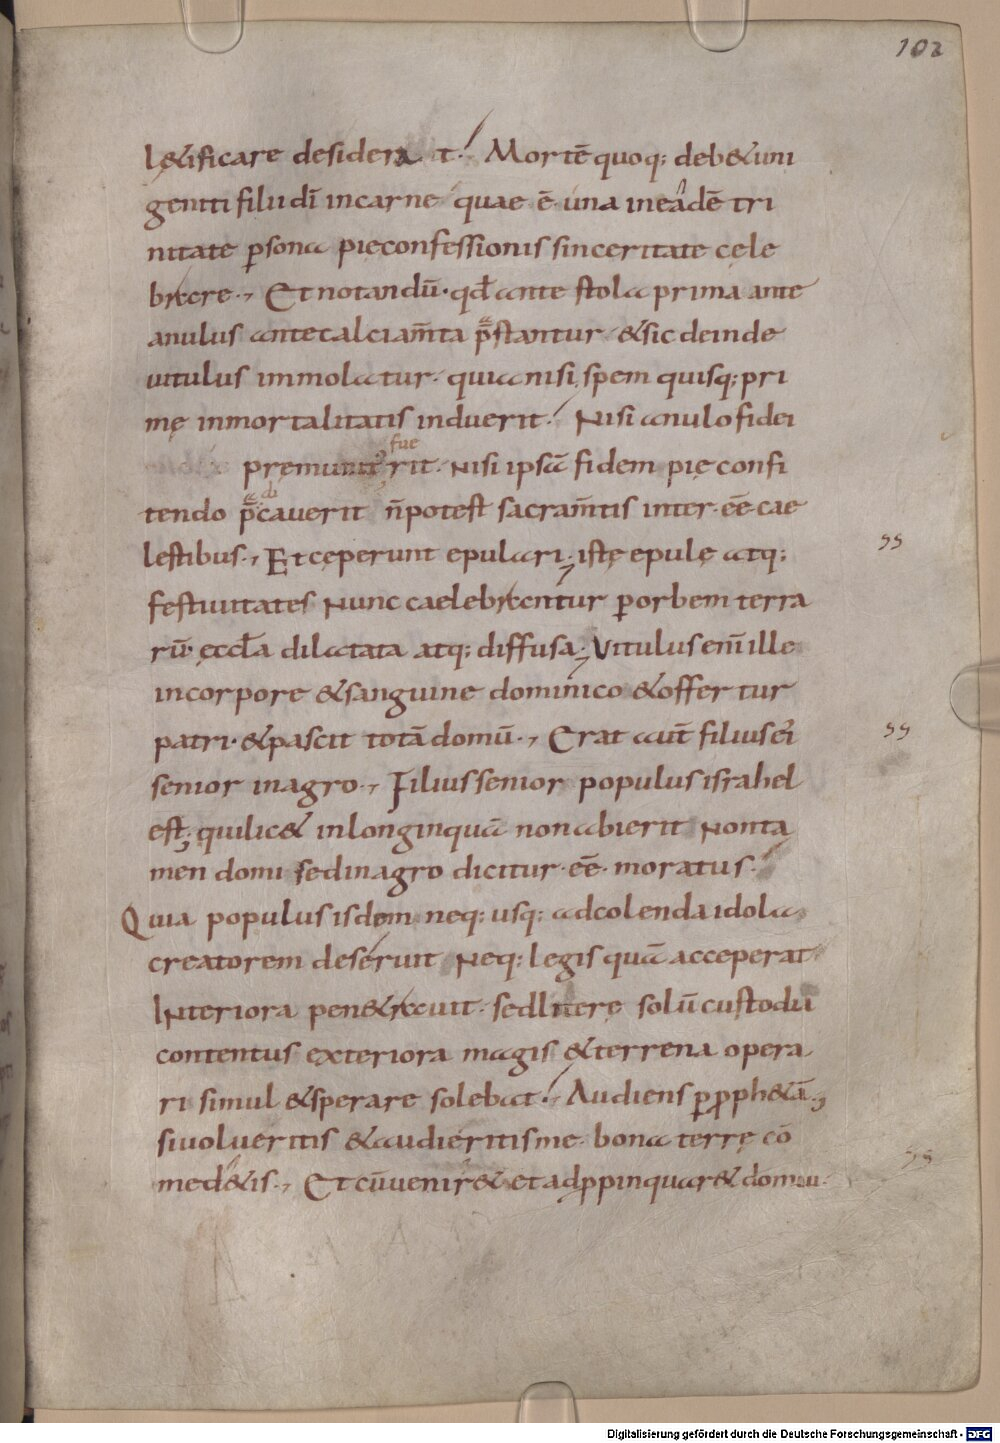 102
l&ificare desiderat. Mortē quoq; deb& uni
geniti filii dī in carne quae ē una in eadē tri
nitate persona pie confessionis sinceritate cele
brare. Et notandū. qđ ante stola prima ante
anulus ante calciam̄ta p̄stantur &sic deinde
uitulus immolatur. quia nisi spem quisq; pri
mę inmortalitatis induerit. Nisi anulo fidei
fue
premunitꝰ rit. Nisi ipsā fidem pię confi
tendo p̄cauerit n̄ potest sacram̄tis inter. eē cae
lestibus. Et ceperunt epulari. istę epulę atq;
festiuitates Nunc caelebrantur ꝑ orbem terra
rū. ęccła dilatata atq; diffusa. Vitulus enī ille
in corpore & sanguine dominico & offertur
patri. & pascit totā domū. Erat aut̄ filius ei
senior in agro. Filius senior populus israhel
est, qui lic& in longinquā non abierit Non ta
men domi sed in agro dicitur. eē. moratus.
Quia populus isdem neq; usq; ad colenda idola
creatorem deseruit Neq; legis quā acceperat
Interiora pen&rauit. sed literę solū custodia
contentus exteriora magis & terrena opera
ri simul & sperare solebat. Audiens ꝑ proph&ā,
si uolueritis & audieritis me. bona terrę cō
med&is. Et cū uenir& et adpropinquar& domui.
Digitalisierung gefördert durch die Deutsche Forschungsgemeinschaft - DFG